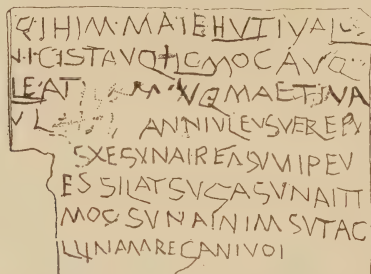 Q·IHIM·MA·IEHVTIVAL
N·I·CISTAVQ MOCAVQ
LEAT VQMAETINA
VL ANNIVLEVSVEREPV
SXESVNAIREASVVIPEV
ESSILATSVCASVNAITI
MOCSVNAINIMSVTAC
LLINAMRECANIVOI